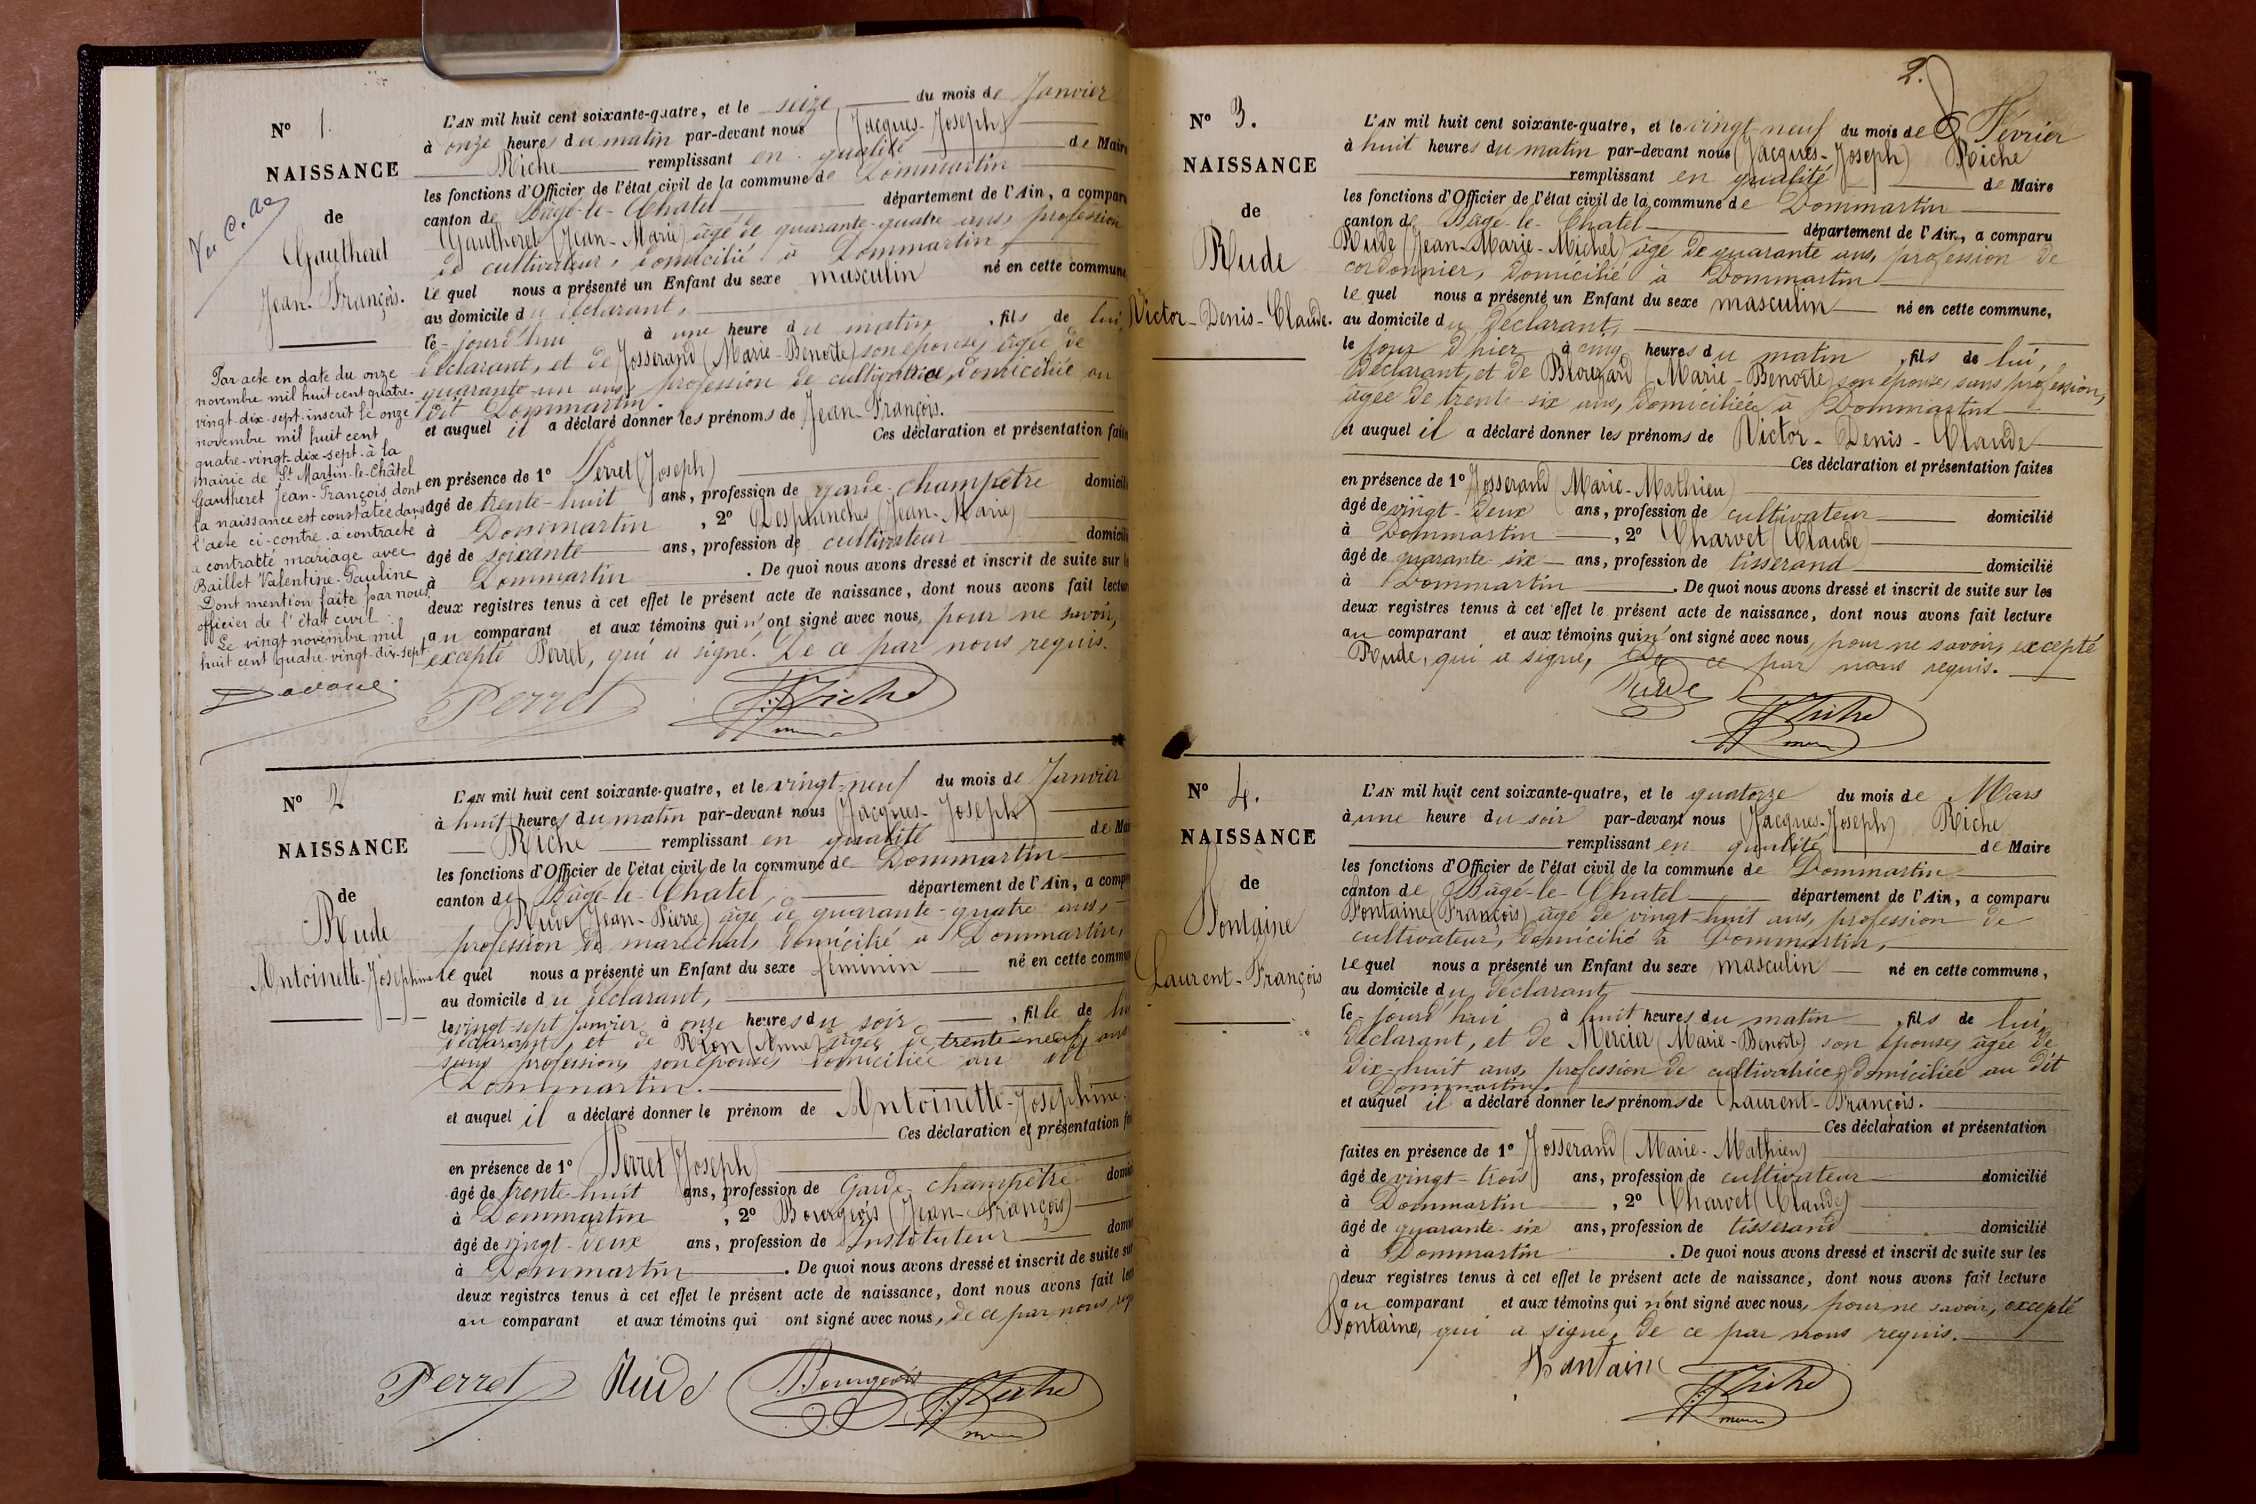 N° 1.
NAISSANCE
de
Gautheret
Jean-François.
L'AN mil huit cent soixante-quatre, et le seize du mois de Janvier
à onze heures du matin par-devant nous (Jacques-Joseph)
Riche remplissant en qualité de Maire
les fonctions d'Officier de l'état civil de la commune de Dommartin
canton de Bâgé-le-Chatel département de l'Ain, a comparu
Gautheret (Jean-Marie) âgé de quarante-quatre ans, profession
de cultivateur, domicilié à Dommartin,
le quel nous a présenté un Enfant du sexe masculin né en cette commune
au domicile du déclarant,
le jourd'hui à une heure du matin, fils de lui,
déclarant, et de Josserand (Marie-Benoîte) son épouse, âgée de
quarante-un ans, profession de cultivatrice, domiciliée au
dit Dommartin.
et auquel il a déclaré donner les prénoms de Jean-François.
Ces déclaration et présentation faites
en présence de 1° Perret (Joseph)
âgé de trente-huit ans, profession de garde-champêtre domicilié
à Dommartin, 2° Desplanches (Jean-Marie)
âgé de soixante ans, profession de cultivateur domicilié
à Dommartin. De quoi nous avons dressé et inscrit de suite sur les
deux registres tenus à cet effet le présent acte de naissance, dont nous avons fait lecture
au comparant et aux témoins qui n'ont signé avec nous, pour ne savoir,
excepté Perret, qui a signé. De ce par nous requis.
Par acte en date du onze
novembre mil huit cent quatre-
vingt-dix-sept inscrit le onze
novembre mil huit cent
quatre-vingt-dix-sept à la
mairie de St Martin-le-Châtel
Gautheret Jean-François dont
la naissance est constatée dans
l'acte ci-contre a contracté
a contracté mariage avec
Baillet Valentine-Pauline
Dont mention faite par nous
officier de l'état civil
Le vingt novembre mil
huit cent quatre-vingt-dix-sept
Perret Riche
maire
N° 2
NAISSANCE
de
Rude
Antoinette-Joséphine
L'AN mil huit cent soixante-quatre, et le vingt-neuf du mois de Janvier
à huit heures du matin par-devant nous (Jacques-Joseph)
Riche remplissant en qualité de Maire
les fonctions d'Officier de l'état civil de la commune de Dommartin
canton de Bâgé-le-Chatel, département de l'Ain, a comparu
Rude (Jean-Pierre) âgé de quarante-quatre ans,
profession de maréchal, domicilié à Dommartin,
le quel nous a présenté un Enfant du sexe féminin né en cette commune
au domicile du déclarant,
le vingt-sept janvier à onze heures du soir, fille de lui
déclarant, et de Rion (Anne) âgée de trente-neuf ans
sans profession, son épouse, domiciliée au dit
Dommartin.
et auquel il a déclaré donner le prénom de Antoinette-Joséphine.
Ces déclaration et présentation
en présence de 1° Perret (Joseph)
âgé de trente-huit ans, profession de Garde-champêtre
à Dommartin, 2° Bourgeois (Jean-François)
âgé de vingt-deux ans, profession de Instituteur
à Dommartin. De quoi nous avons dressé et inscrit de suite sur
deux registres tenus à cet effet le présent acte de naissance, dont nous avons fait
au comparant et aux témoins qui ont signé avec nous, de ce par nous
Perret Rude Bourgeois Riche
maire
2.
N° 3.
NAISSANCE
de
Rude
Victor-Denis-Claude.
L'AN mil huit cent soixante-quatre, et le vingt-neuf du mois de Février
à huit heures du matin par-devant nous (Jacques-Joseph) Riche
remplissant en qualité de Maire
les fonctions d'Officier de l'état civil de la commune de Dommartin
canton de Bâgé-le-Chatel département de l'Ain, a comparu
Rude (Jean-Marie-Michel) âgé de quarante ans, profession de
cordonnier, domicilié à Dommartin
le quel nous a présenté un Enfant du sexe masculin né en cette commune,
au domicile du déclarant,
le jour d'hier à cinq heures du matin, fils de lui,
Déclarant, et de (Marie-Benoîte) son épouse, sans profession,
âgée de trente-six ans, domiciliée à Dommartin
et auquel il a déclaré donner les prénoms de Victor-Denis-Claude
Ces déclaration et présentation faites
en présence de 1° Josserand (Marie-Mathieu)
âgé de vingt-deux ans, profession de cultivateur domicilié
à Dommartin, 2° Charvet (Claude)
âgé de quarante-six ans, profession de tisserand domicilié
à Dommartin. De quoi nous avons dressé et inscrit de suite sur les
deux registres tenus à cet effet le présent acte de naissance, dont nous avons fait lecture
au comparant et aux témoins qui n'ont signé avec nous, pour ne savoir, excepté
Rude, qui a signé, De ce par nous requis.
Rude
Riche
maire
N° 4.
NAISSANCE
de
Fontaine
Laurent-François
L'AN mil huit cent soixante-quatre, et le quatorze du mois de Mars
à une heure du soir par-devant nous (Jacques-Joseph) Riche
remplissant en qualité de Maire
les fonctions d'Officier de l'état civil de la commune de Dommartin
canton de Bâgé-le-Chatel département de l'Ain, a comparu
Fontaine (François) âgé de vingt-huit ans, profession de
cultivateur, domicilié à Dommartin,
le quel nous a présenté un Enfant du sexe masculin né en cette commune,
au domicile du déclarant
le jourd'hui à huit heures du matin, fils de lui
déclarant, et de Mercier (Marie-Benoîte) son épouse, âgée de
dix-huit ans, profession de cultivatrice, domiciliée au dit
Dommartin.
et auquel il a déclaré donner les prénoms de Laurent-François.
Ces déclaration et présentation
faites en présence de 1° Josserand (Marie-Mathieu)
âgé de vingt-trois ans, profession de cultivateur domicilié
à Dommartin, 2° Charvet (Claude)
âgé de quarante-six ans, profession de tisserand domicilié
à Dommartin. De quoi nous avons dressé et inscrit de suite sur les
deux registres tenus à cet effet le présent acte de naissance, dont nous avons fait lecture
au comparant et aux témoins qui n'ont signé avec nous, pour ne savoir, excepté
Fontaine, qui a signé, de ce par nous requis.
Fontaine
Riche
maire